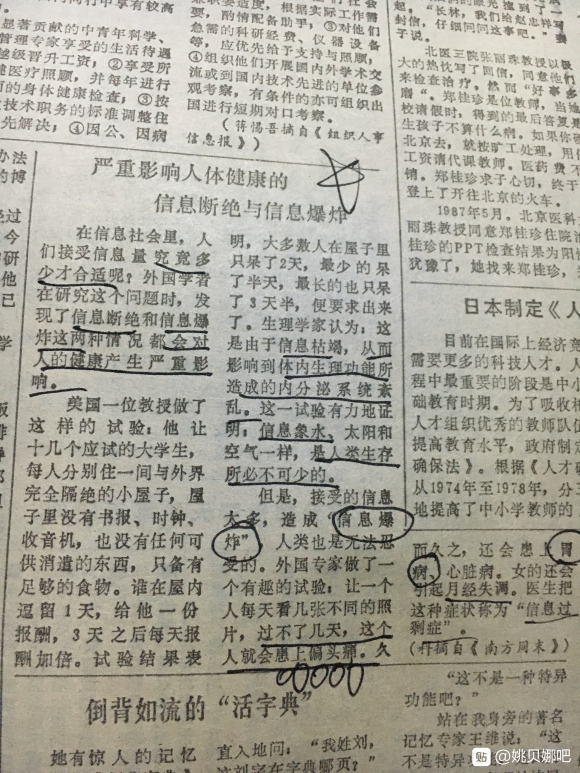 显著贡献的中青年科学、
管理专家享受的生活待遇
越级晋升工资；②享受所
健医疗照顾，并每年进行
面的身体健康检查；③按
技术职务的标准调整住
先解决；④因公、因病
要，酌情配备助手；③对他们
急需的科研经费、仪器设备
等，应优先给予支持与照顾；
④组织他们开展国内外学术交
流或到国内技术先进的单位参
观考察，有条件的亦可组织出
国进行短期对口考察。
（蒋惕吾摘自《组织人事
信息报》）
严重影响人体健康的
信息断绝与信息爆炸
在信息社会里，人
们接受信息量究竟多
少才合适呢？外国学者
在研究这个问题时，发
现了信息断绝和信息爆
炸这两种情况都会对
人的健康产生严重影
响。
美国一位教授做了
这样的试验：他让
十几个应试的大学生，
每人分别住一间与外界
完全隔绝的小屋子，屋
子里没有书报、时钟、
收音机，也没有任何可
供消遣的东西，只备有
足够的食物。谁在屋内
逗留1天，给他一份
报酬，3天之后每天报
酬加倍。试验结果表
明，大多数人在屋子里
只呆了2天，最少的呆
了半天，最长的也只呆
了3天半，便要求出来
了。生理学家认为：这
是由于信息枯竭，从而
影响到体内生理功能所
造成的内分泌系统紊
乱。这一试验有力地证
明：信息象水、太阳和
空气一样，是人类生存
所必不可少的。
但是，接受的信息
太多，造成“信息爆
炸”，人类也是无法忍
受的。外国专家做了一
个有趣的试验：让一个
人每天看几张不同的照
片，过不了几天，这个
人就会患上偏头痛。久
而久之，还会患上胃
病、心脏病。女的还会
引起月经失调。医生把
这种症状称为“信息过
剩症”。
摘自《南方周末》）
封信，仔细问问这事吧。”
子说。
北医三院张丽珠教授以极
大的热忱写了回信，同意他们
来检查治疗。然而“好事多
磨”。郑桂珍是位教师，当她
校请假时，得到的最后答复是
生孩子不算什么病。如果你
北京去，就按旷工处理，用
工资请代课教师。医药费不
销。郑桂珍求子心切，终于
登上了开往北京的火车。
1987年5月，北京医科
丽珠教授同意郑桂珍住院
桂珍的PPT检查结果为阳
犹豫了，她找来郑桂珍，
日本制定《人
目前在国际上经济竞
需要更多的科技人才。人
程中最重要的阶段是中小
础教育时期。为了吸收
人才组织优秀的教师队伍
提高教育水平，政府制定
确保法》。根据《人才
从1974年至1978年，分三
地提高了中小学教师的
倒背如流的“活字典”
她有惊人的记忆
直入地问：“我姓刘，
这刘字在字典哪页？”
“这不是一种特异
功能吧？”
站在我身旁的著名
记忆专家王维说：“这
不是特异
贴 @姚贝娜吧